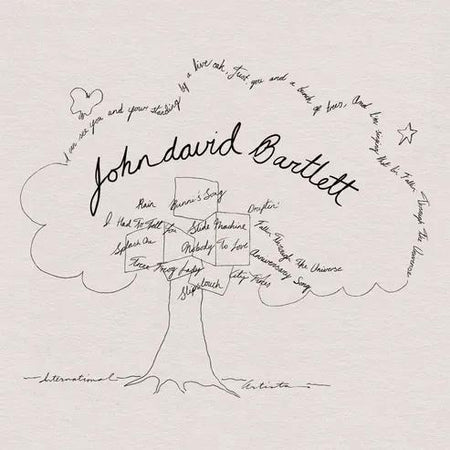 I can see you and your standing by a live oak, Just you and a bunch of trees, And I'm saying that I'm Fallin Through the Universe
John david Bartlett
Rain Bunni's Song Driftin'
I Had To Tell You Slide Machine
Splash One Nobody To Love
Fallin Through The Universe
Anniversary Song
Tree Frog Lady City Fires
Slipstouch
International Artists